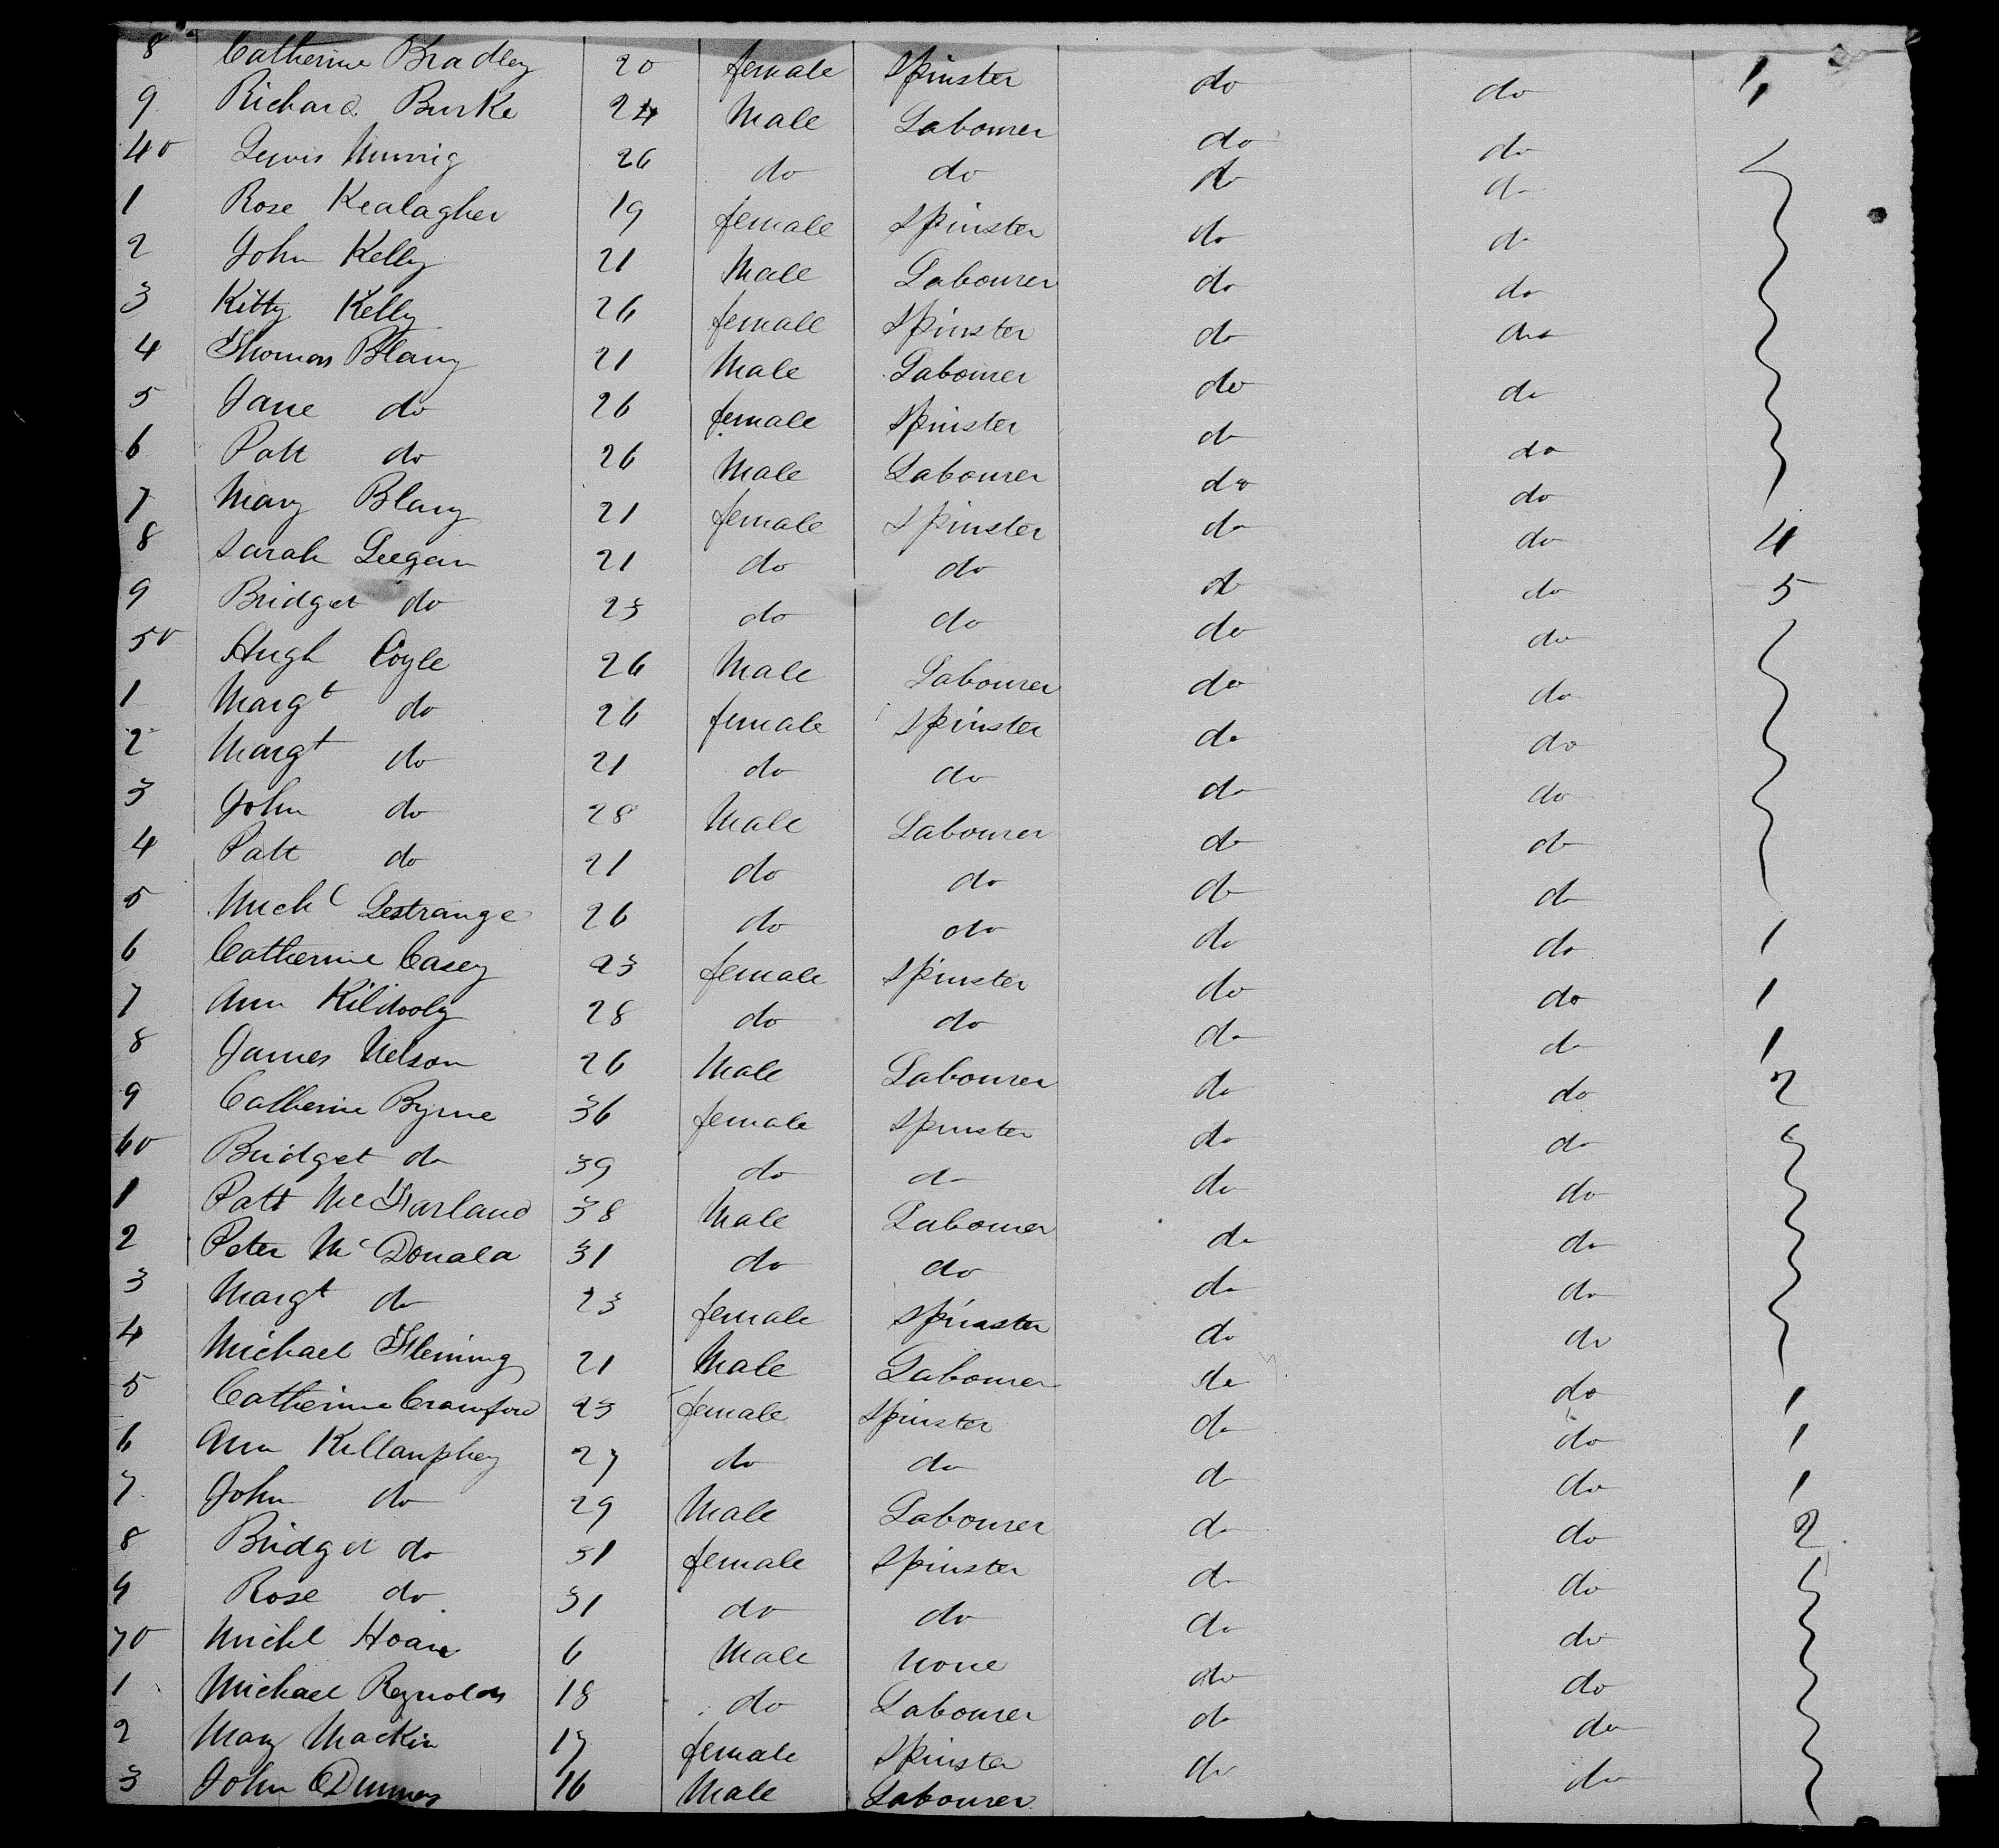 8 Catherine Bradley 20 female Spinster do do 1,
9 Richard Burke 24 Male Labourer do do
40 Lewis 26 do do do do
1 Rose Kealagher 19 female Spinster do do
2 John Kelly 21 Male Labourer do do
3 Kitty Kelly 26 female Spinster do do
4 Thomas Blany 21 Male Labourer do do
5 Jane do 26 female Spinster do do
6 Patt do 26 Male Labourer do do
7 Mary Blany 21 female Spinster do do 4
8 Sarah Geegan 21 do do do do 5
9 Bridget do 23 do do do do
50 Hugh Coyle 26 Male Labourer do do
1 Margt do 26 female Spinster do do
2 Margt do 21 do do do do
3 John do 28 Male Labourer do do
4 Patt do 21 do do do do
5 Michl Lestrange 26 do do do do 1
6 Catherine Casey 23 female Spinster do do 1
7 Ann Kildooly 28 do do do do 1
8 James Nelson 26 Male Labourer do do 2
9 Catherine Byrne 36 female Spinster do do
60 Bridget do 39 do do do do
1 Patt McFarland 38 Male Labourer do do
2 Peter McDonald 31 do do do do
3 Margt do 23 female Spinster do do
4 Michael Fleming 21 Male Labourer do do 1
5 Catherine Crawford 23 female Spinster do do 1
6 Ann Killanphey 27 do do do do 1
7 John do 29 Male Labourer do do 2
8 Bridget do 31 female Spinster do do
9 Rose do 31 do do do do
70 Michl Hoare 6 Male none do do
1 Michael Reynolds 18 do Labourer do do
2 Mary Mackin 17 female Spinster do do
3 John 16 Male Labourer do do